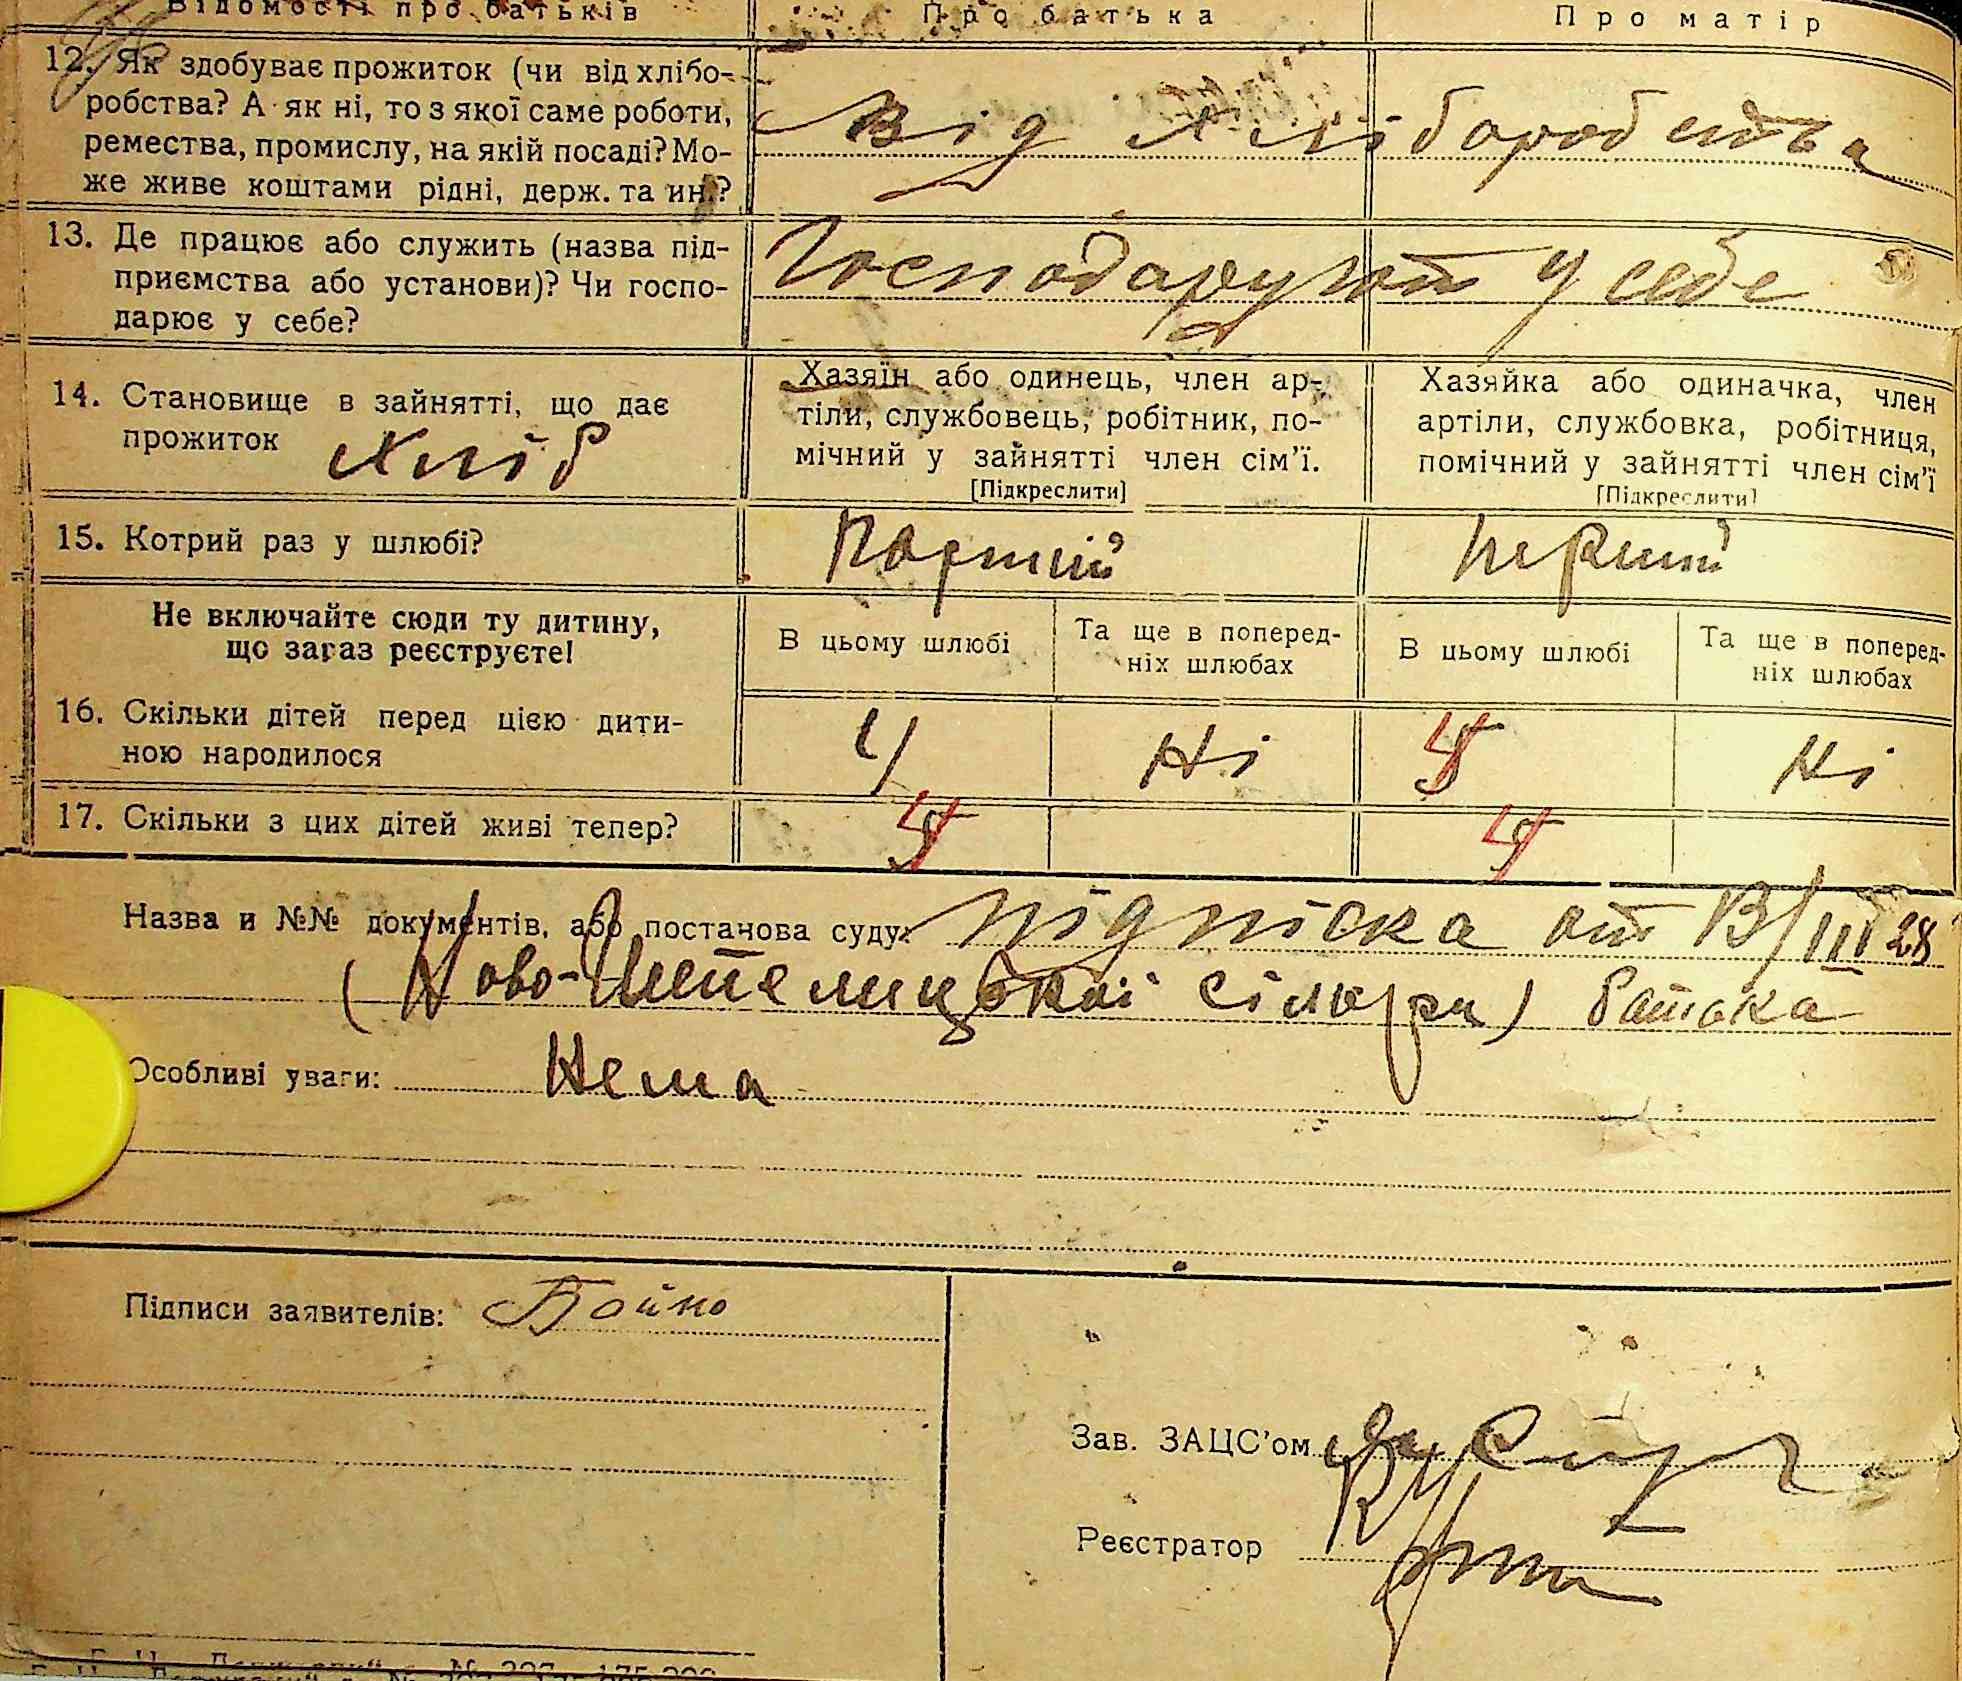 Відомості про батьків
Про батька
Про матір
12. Як здобуває прожиток (чи від хлібо-
робства? А як ні, то з якої саме роботи,
ремества, промислу, на якій посаді? Мо-
же живе коштами рідні, держ. та ин.?
Від хліборобства
13. Де працює або служить (назва під-
приємства або установи)? Чи госпо-
дарює у себе?
Господарують у себе
14. Становище в зайнятті, що дає
прожиток
Хліб
Хазяїн або одинець, член ар-
тіли, службовець, робітник, по-
мічний у зайнятті член сім'ї.
[Підкреслити]
Хазяйка або одиначка, член
артіли, службовка, робітниця,
помічний у зайнятті член сім'ї
[Підкреслити]
15. Котрий раз у шлюбі?
Перший
Не включайте сюди ту дитину,
що зараз реєструєте!
В цьому шлюбі
Та ще в поперед-
ніх шлюбах
В цьому шлюбі
Та ще в поперед-
ніх шлюбах
16. Скільки дітей перед цією дити-
ною народилося
4
Ні
Ні
17. Скільки з цих дітей живі тепер?
Назва и №№ документів, або постанова суду:
підпіска от 13/III 28
(Ново-Шепелицької сільради) батька
Особливі уваги: Нема
Підписи заявителів: Бойко
Зав. ЗАЦС'ом
Реєстратор